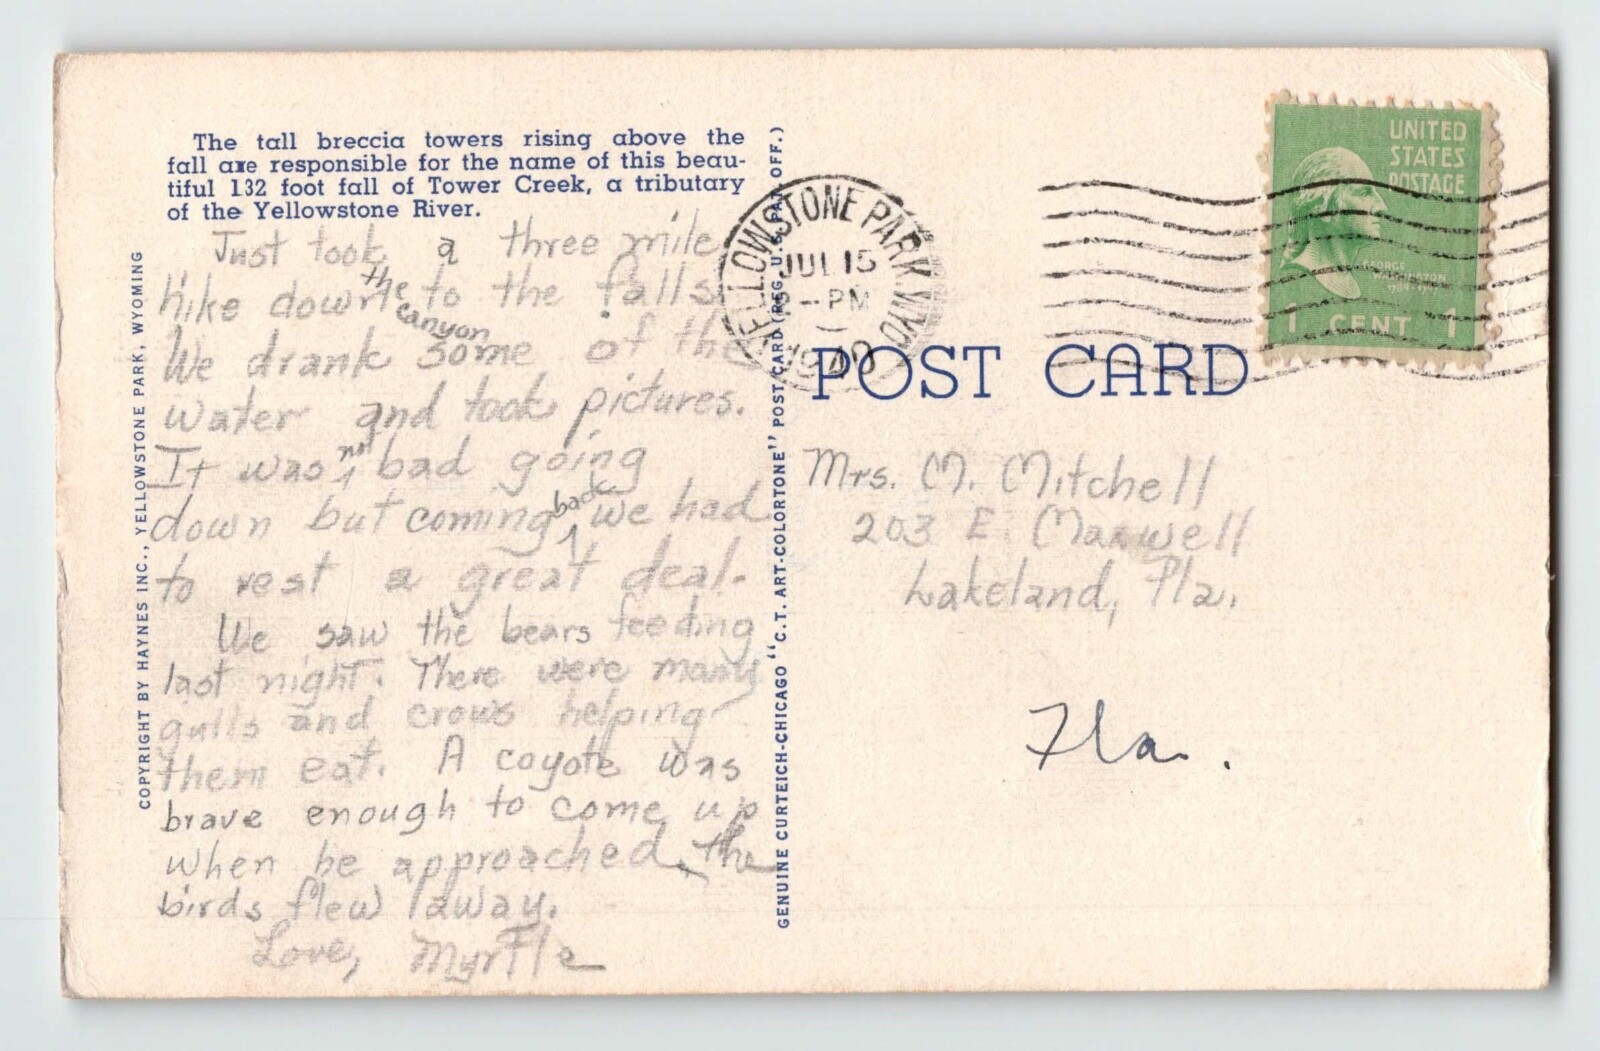 The tall breccia towers rising above the
fall are responsible for the name of this beau-
tiful 132 foot fall of Tower Creek, a tributary
of the Yellowstone River.
Just took a three mile
hike down the canyon to the falls.
We drank some of the
water and took pictures.
It was not bad going
down but coming back we had
to rest a great deal.
We saw the bears feeding
last night. There were many
gulls and crows helping
them eat. A coyote was
brave enough to come up
when he approached the
birds flew away.
Love, Myrtle
COPYRIGHT BY HAYNES INC., YELLOWSTONE PARK, WYOMING
GENUINE CURTEICH-CHICAGO "C.T. ART-COLORTONE" POST CARD (REG. U.S. PAT. OFF.)
YELLOWSTONE PARK, WYO.
JUL 15
-PM
1940
UNITED
STATES
POSTAGE
GEORGE
WASHINGTON
1 CENT 1
POST CARD
Mrs. M. Mitchell
203 E. Maxwell
Lakeland, Fla.
Fla.